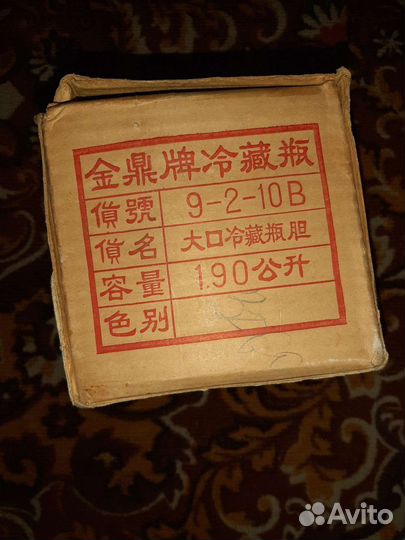 金鼎牌冷藏瓶
貨號 9-2-10B
貨名 大口冷藏瓶胆
容量 1.90公升
色别
Avito